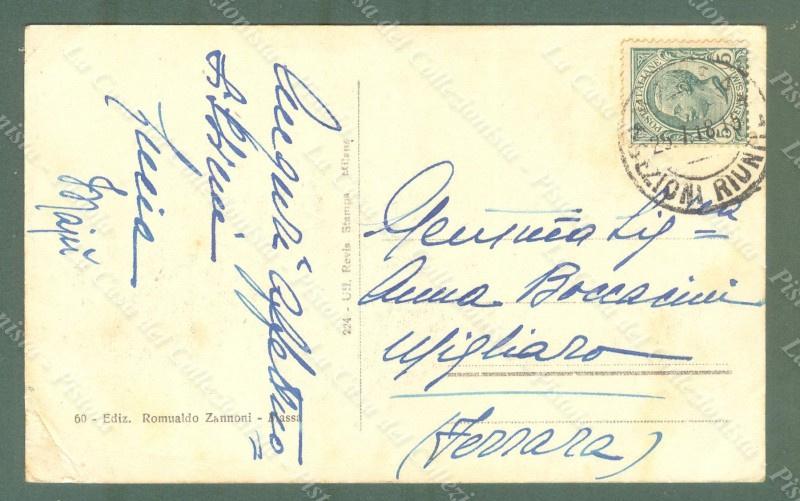 Auguri affettuo
=
sissimi
Lucia
60 - Ediz. Romualdo Zannoni - Massa
224 - Uff. Revis. Stampa Milano
POSTE ITALIANE
SEZIONI RIUNITE
Gentma Signa
Anna Boccacini
Migliaro
(Ferrara)
La Casa del Collezionista - Pistoia